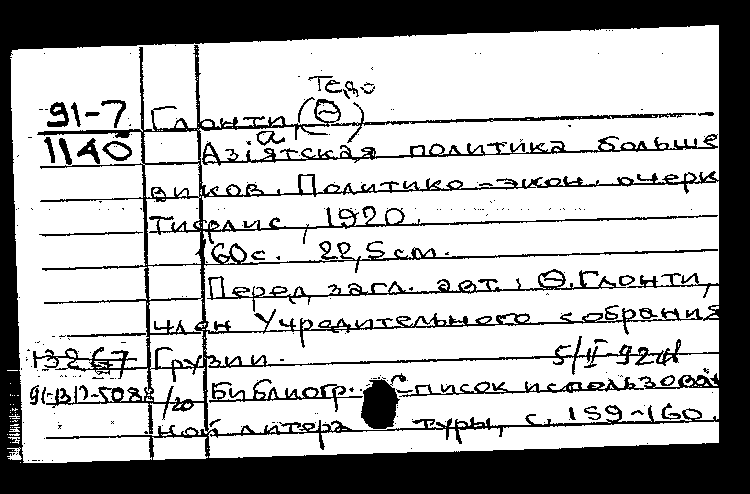 Тедо
91-7 Глонти, (Ѳ)
1140 а
Азiятская политика больше
виков. Политико-экон. очерк
Тифлис, 1920.
160с. 22,5см.
Перед загл. авт.: Ѳ. Глонти,
член Учредительного собрания
13267 Грузии. 5/II-92
91-(3)-5088/20 Библиогр. Список использован
ной литера туры, с. 159-160.